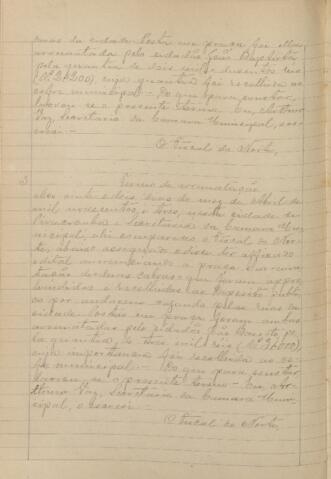 ruas da cidade. Posta em praça foi ella
arrematada pelo cidadão João Baptista
pela quantia de dois mil e duzentos reis
(Rs 2$200) cuja quantia foi recolhida ao
cofre municipal. — Do que para constar,
lavrou-se o presente termo. Eu, 
Vaz, Secretario da Camara Municipal, es-
crevi. —
O Fiscal do Norte,
3
Termo de arrematação
Aos vinte e dois dias do mez de Abril de
mil novecentos e tres, nesta cidade de
e Secretaria da Camara Mu-
nicipal, ahi compareceu o Fiscal do Nor-
te, abaixo assignado e disse ter affixado
edital annunciando a praça e arrema-
tação de duas cabras que foram appre-
hendidas e recolhidas ao deposito publi-
co por andarem vagando pelas ruas da
cidade. Postas em praça foram ambas
arrematadas pelo cidadão 
la quantia de  mil reis
cuja importancia foi recolhida ao co-
fre municipal. — Do que para constar
lavrou-se o presente termo. — Eu,
Vaz, Secretario da Camara Muni-
cipal, o escrevi. —
O Fiscal do Norte,